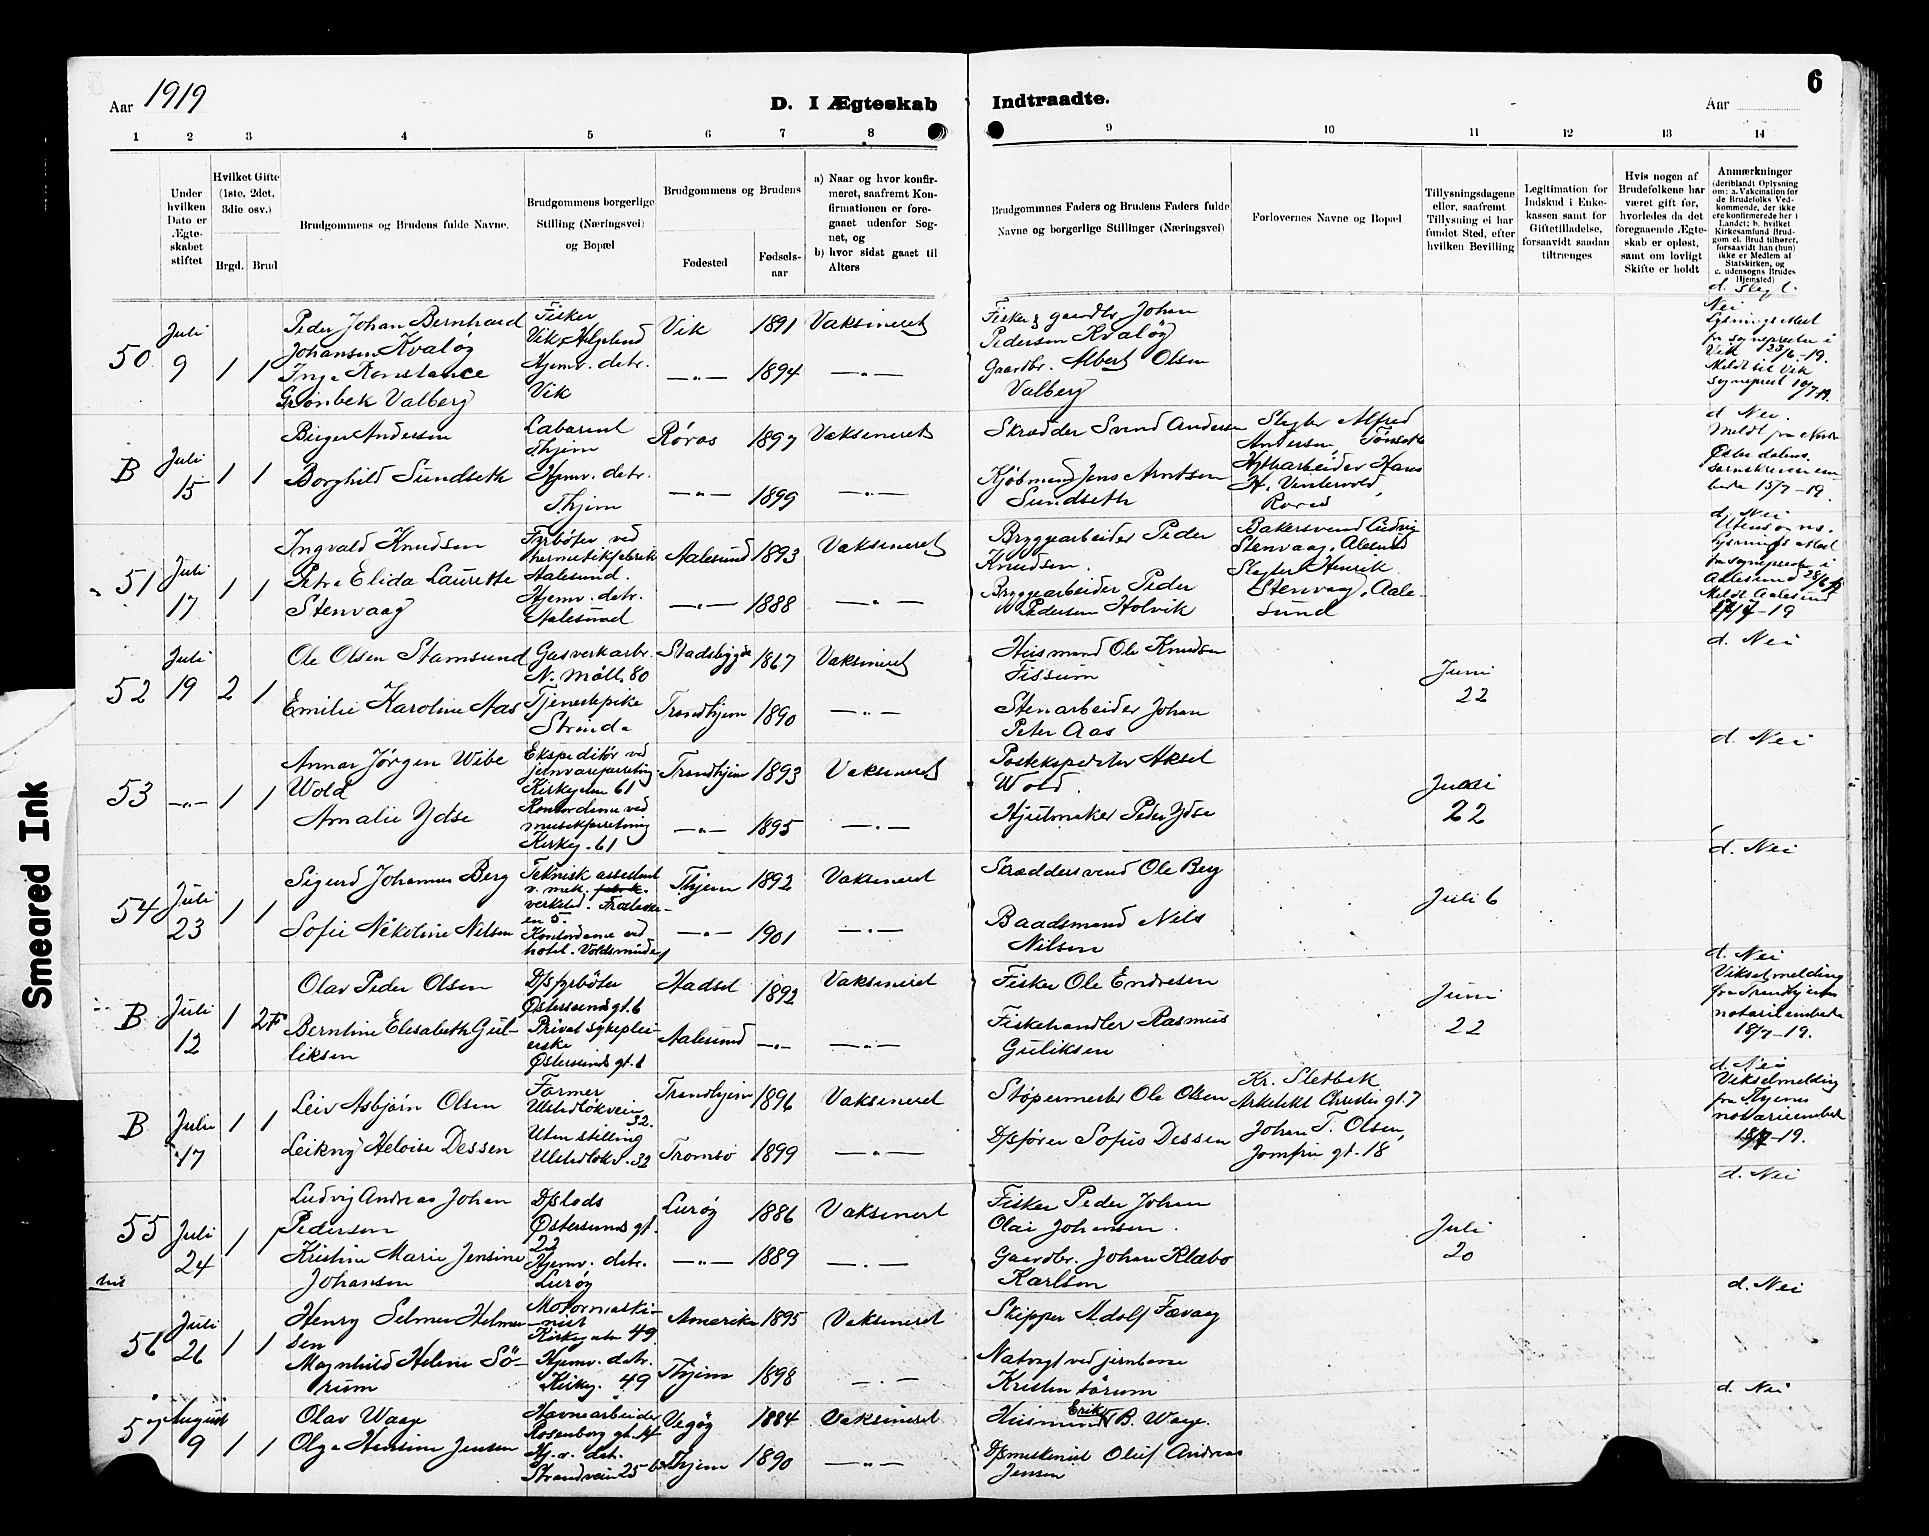 Aar 1919
D. I Ægteskab Indtraadte.
Aar
6
1 2 3 4 5 6 7 8 9 10 11 12 13 14
Under hvilken Dato er Ægteskabet stiftet
Hvilket Gifte (1ste, 2det, 3die osv.)
Brgd. Brud
Brudgommens og Brudens fulde Navne.
Brudgommens borgerlige Stilling (Næringsvei) og Bopæl
Brudgommens og Brudens
Fødested
Fødselsaar
a) Naar og hvor konfirmeret, saafremt Konfirmationen er foregaaet udenfor Sognet, og
b) hvor sidst gaaet til Alters
Brudgommnes Faders og Brudens Faders fulde Navne og borgerlige Stillinger (Næringsvei)
Forlovernes Navne og Bopæl
Tillysningsdagene eller, saafremt Tillysning ei har fundet Sted, efter hvilken Bevilling
Legitimation for Indskud i Enkekassen samt for Giftetilladelse, forsaavidt saadan tiltrænges
Hvis nogen af Brudefolkene har været gift før, hvorledes da det foregaaende Ægteskab er opløst, samt om lovligt Skifte er holdt
Anmærkninger
(deriblandt Oplysning om: a. Vakcination for de Brudefolks Vedkommende, der ikke ere konfirmerede her i Landet; b. hvilket Kirkesamfund Brudgom el. Brud tilhører, forsaavidt han (hun) ikke er Medlem af Statskirken, og c. udensogns Brudes Hjemsted)
50
Juli
9
1 1
Peder Johan Bernhard
Johansen Kvaløy
Inga Konstance
Grønbek Valberg
Fisker
Vik, Helgeland
Hjemv. detr.
Vik
Vik
1891
Vaksineret
— " —
1894
— " —
Fisker & gaardbr. Johan
Pedersen Kvaløy
Gaardbr. Albert Olsen
Valberg
d. Slegt.
Nei
Lysnings Mest
fra sogneprester i
Vik 23/6-19.
Meldt til Vik
sogneprest 10/7 19.
B
Juli
15
1 1
Birger Andersen
Borghild Sundseth
Thjem
Hjemv. detr.
Thjem
Røros
1897
Vaksineret
— " —
1899
— " —
Skrædder Svend Andersen
Kjøbmand Jens Arntsen
Sundseth
Slagter Alfred
Andersen, Tönseth
Hytarbeider Hans
H. Vintervold,
Røros
d. Nei.
Meldt fra Nordre
Østerdalens
sorenskriverembede 15/7-19.
51
Juli
17
1 1
Ingvald Knudsen
Petra Elida Laurette
Stenvaag
Fyrböter ved
hermetikfabrik
Aalesund.
Hjemv. detr.
Aalesund
Aalesund
1893
Vaksineret
— " —
1888
— " —
Bryggearbeider Peder
Knudsen.
Bryggearbeider Peder
Pedersen Holvik
Bakersvend Ludvig
Stenvaag, Alesund
Slagter Henrik
Stenvaag, Aalesund
d. Nei
Utensogns.
Lysnings Mest
fra sogneprester i
Aalesund 28/6 19
Meldt Aalesund
17/7-19
52
Juli
19
2 1
Ole Olsen Stamsund
Emilie Karoline Aas
Gasverkarbr.
N. Möll. 80
Tjenestepike
Strinda
Stadsbygd
1867
Vaksineret
Trondhjem
1890
— " —
Husmand Ole Knudsen
Fissum
Stenarbeider Johan
Peter Aas
Juni
22
d. Nei
53
— " —
1 1
Annar Jörgen Wibe
Wold
Amalie Ydse
Ekspeditör ved
jernvareforretning
Kirkegaten 61
Kontordame ved
musikforretning
Kirkeg. 61
Trondhjem
1893
Vaksineret
— " —
1895
— " —
Postekspeditör Aksel
Wold.
Hjulmaker Peder Ydse
Juni
22
d. Nei
54
Juli
23
1 1
Sigurd Johannes Berg
Sofie Nikoline Nilsen
Teknisk assistent
v. mek. fabrik.
verksted.
Kontordame ved
hotel. Voldsminde
Thjem
1892
Vaksineret
— " —
1901
— " —
Skræddersvend Ole Berg
Baadsmand Nils
Nilsen
Juli 6
d. Nei
B
Juli
12
1 2F
Olav Peder Olsen
Berntine Elisabeth Gulliksen
D/sfyrböter
Østersunds gt. 6
Privat sykepleierske
Østersunds gt. 6
Hadsel
1892
Vaksineret
Aalesund
— " —
— " —
Fisker Ole Endresen
Fiskehandler Rasmus
Guliksen
Juni
22
d. Nei
Vikselmelding
fra Trondhjems
notariiembede
18/7-19.
B
Juli
17
1 1
Leiv Asbjörn Olsen
Leikny Heloise Dessen
Former
Ulstadlökvein
32.
Uten stilling
Ulstadlökv. 32
Trondhjem
1896
Vaksineret
Tromsö
1899
— " —
Støpermester Ole Olsen
D/sförer Sofus Dessen
Kr. Sletbak
Arkitekt Christies gt. 7
Johan T. Olsen,
Jomfru gt. 18
d. Nei
Vikselmelding
fra Thjems
notariiembede
18/7-19.
55
Juli
24
1 1
Ludvig Andreas Johan
Pedersen
Kristine Marie Jensine
Johansen
D/slods
Østersunds gt.
22
Hjemv. detr.
Lurøy
Lurøy
1886
Vaksinert
— " —
1889
— " —
Fisker Peder Johan
Olai Johansen.
Gaardbr. Johan Klabo
Karlsen
Juli
20
d. Nei
56
Juli
26
1 1
Henry Selmer Helmersen
Magnhild Helene Sörum
Motormaskinist
Kirkegaten 49.
Hjemv. detr.
Kirkeg. 49
Amerika
1895
Vaksineret
Thjem
1898
— " —
Skipper Adolf Fævaag
Natvagt ved jernbane
Kristen Sörum
d. Nei
57
August
9
1 1
Olav Waage
Olga Hansine Jensen
Havnearbeider
Rosenborg gt. 14
Hj. v. detr.
Strandvein 25 b
Vegøy
1884
Vaksineret
Thjem
1890
— " —
Husmand Erik B. Waage.
D/smaskinist Oluf Andreas
Jensen
d. Nei
Smeared Ink